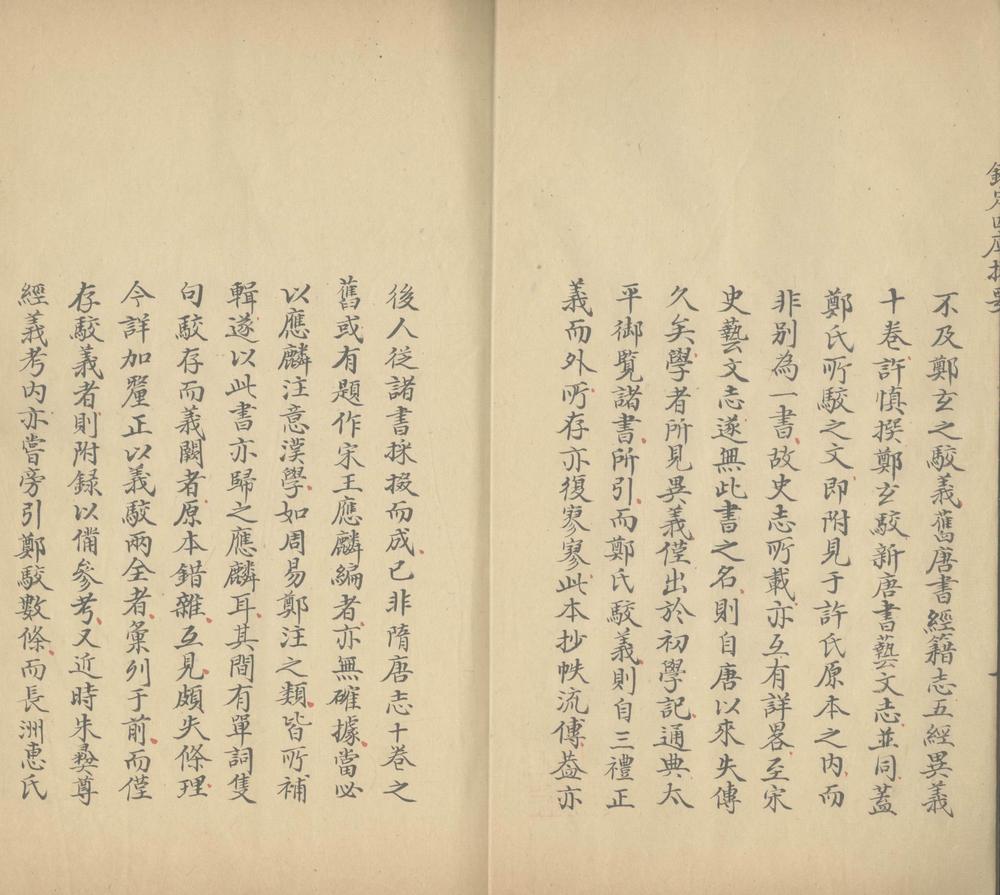 不及鄭玄之駁義舊唐書經籍志五經異義
十卷許慎撰鄭玄駁新唐書藝文志並同蓋
鄭氏所駁之文即附見于許氏原本之內而
非别為一書故史志所載亦互有詳畧至宋
史藝文志遂無此書之名則自唐以來失傳
久矣學者所見異義僅出於初學記通典太
平御覽諸書所引而鄭氏駁義則自三禮正
義而外所存亦復寥寥此本抄帙流傳葢亦
後人從諸書採掇而成已非隋唐志十卷之
舊或有題作宋王應麟編者亦無確據當必
以應麟注意漢學如周易鄭注之類皆所補
輯遂以此書亦歸之應麟耳其間有單詞隻
句駁存而義闕者原本錯雜互見頗失條理
今詳加釐正以義駁兩全者彙列于前而僅
存駁義者則附録以備參考又近時朱彝尊
經義考內亦嘗旁引鄭駁數條而長洲惠氏